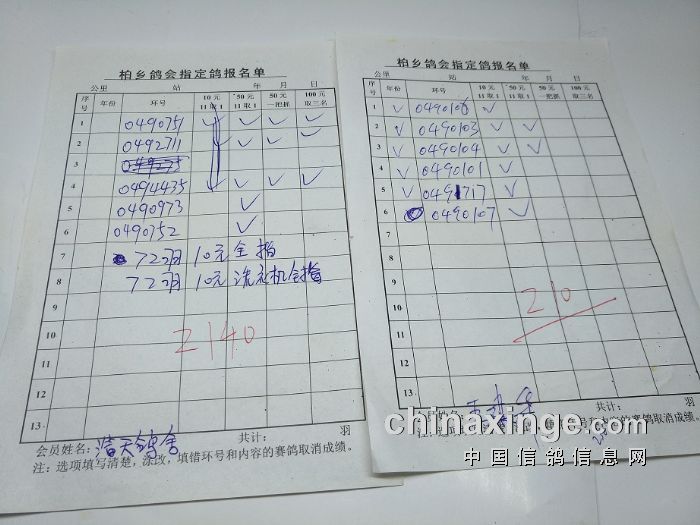 柏乡鸽会指定鸽报名单
公里 站 年 月 日
序号 年份 环号 10元11取1 50元11取1 50元一把抓 100元取三名
1 0490751 ✓ ✓ ✓ ✓
2 0492711 ✓ ✓ ✓
3
4 0494435 ✓ ✓ ✓ ✓
5 0490973 ✓
6 0490752 ✓
7 72羽 10元全指
8 72羽 10元洗衣机全指
9
10
11
12
13
2140
会员姓名: 浩天鸽舍 共计: 羽
注:选项填写清楚,涂改,填错环号和内容的赛鸽取消成绩。
柏乡鸽会指定鸽报名单
公里 站 年 月 日
序号 年份 环号 10元11取1 50元11取1 50元一把抓 100元取三名
1 ✓ 0490108 ✓
2 ✓ 0490103 ✓ ✓
3 ✓ 0490104 ✓ ✓
4 ✓ 0490101 ✓
5 ✓ 0491717 ✓
6 0490107 ✓
7
8
9
10
11
12
13
210
会员姓名: 共计: 羽
和内容的赛鸽取消成绩。
chinaxinge.com
中国信鸽信息网